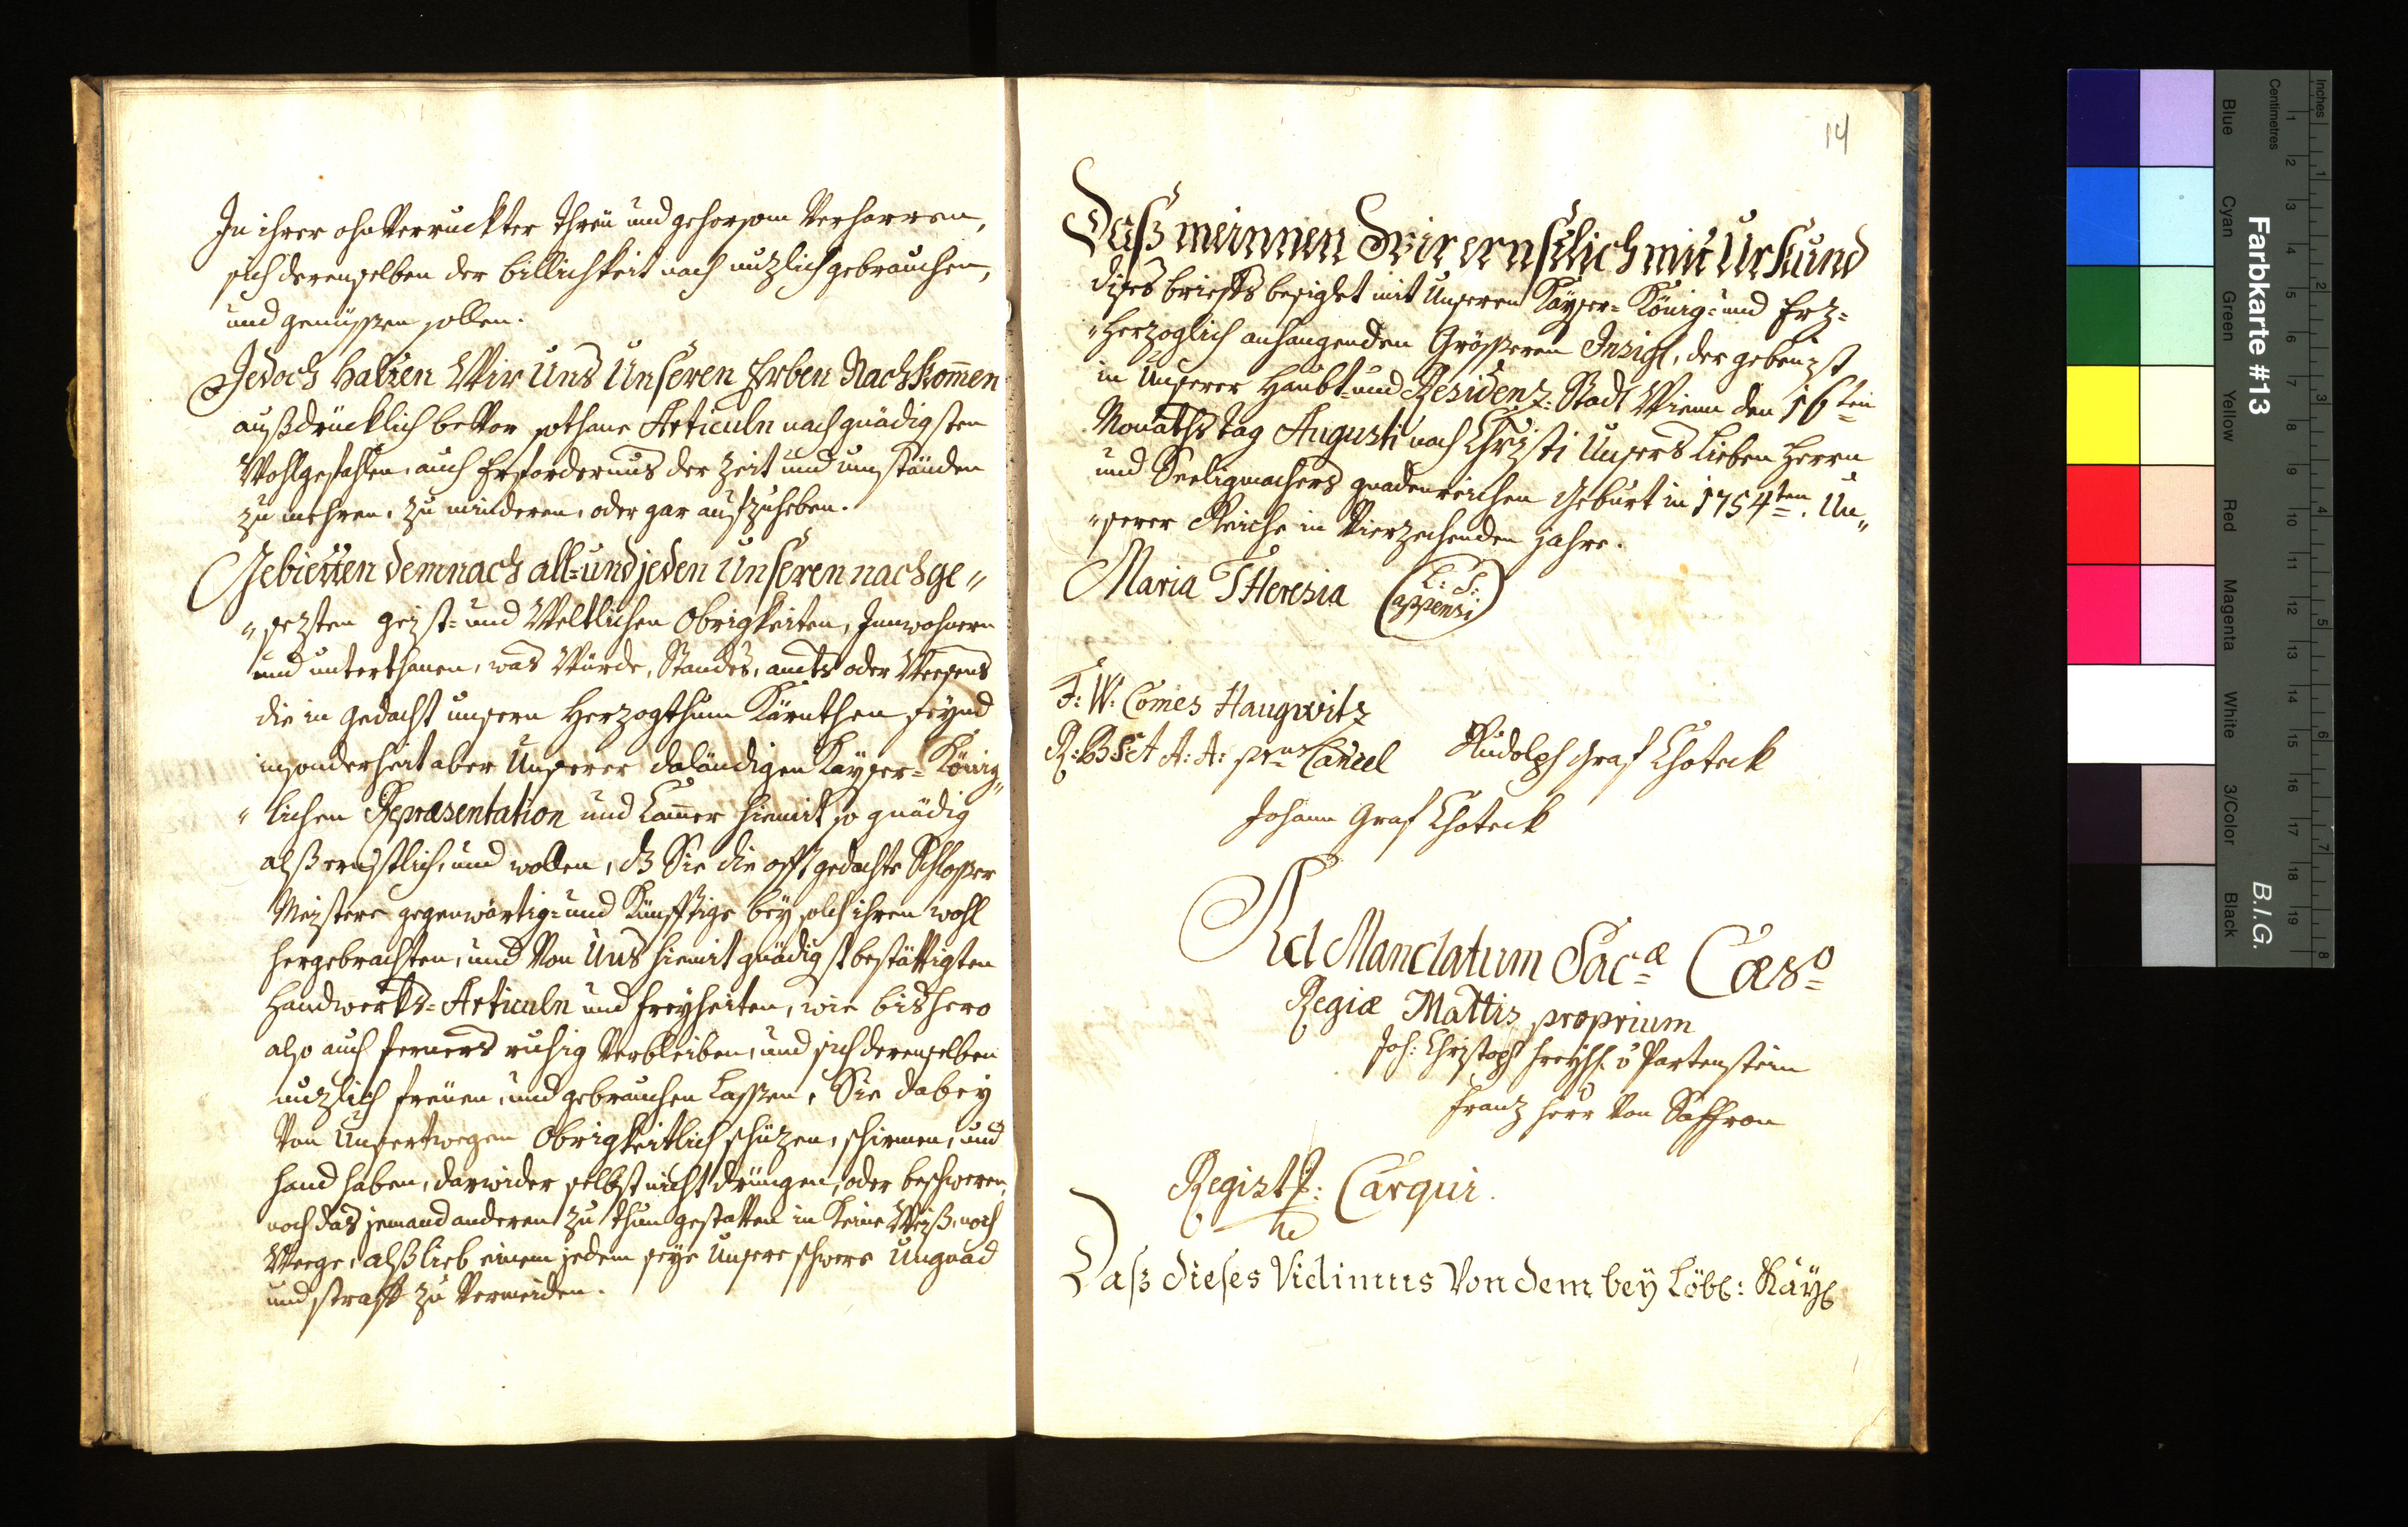 In ihrer ohnVerruckter threü und gehorsam Verharren,
sich derenselben der billichkeit nach nuzlich gebrauchen,
und genüssen sollen.
Jedoch halten Wir Uns Unseren Erben Nachkom̅en
außdrücklich beVor sothane Articuln nach gnädigsten
Wohlgefahlen, auch Erfordernus der Zeit und umständen
zu mehren, zu minderen, oder gar aufzuheben.
Gebietten demnach all- und jeden Unseren nachge„
„sezten geist- und Weltlichen Obrigkeiten, Innwohnern
und unterthanen, was Würde, Standes, amts oder Weesens
die in gedacht unsern Herzogthum Kärnthen seynd
insonderheit aber Unserer daländigen Kayser- König„
„lichen Repræsentation und Cam̅er hiemit so gnädig
alß ernstlich, und wollen, dz Sie die offtgedachte Schlosser
Meistere gegenwärtig- und Künfftige bey solch ihren wohl
hergebrachten, und Von Uns hiemit gnädigst bestättigten
Handwerks- Articuln und freyheiten, wie bishero
also auch ferners ruhig Verbleiben, und sich derenselben
nuzlich freuen, und gebrauchen lassen, Sie dabey
Von Unsertwegen Obrigkeitlich schüzen, schirmen, und
handhaben, darwider selbst nicht drüngen, oder beschweren,
noch das jemand anderen zu thun gestatten in Keine Weiß, noch
Weege, alß lieb einem jedem seye Unsere schwere Ungnad
und straff zu Vermeiden.
14
Daß meinnen Wir ernstlich mit Urkund
dises brieffs besiglet mit Unseren Kayser- König- und Erz-
„Herzoglich anhangenden Grösseren Insigl, der geben ist
in Unserer Haubt- und Residenz- Stadt Wienn den 16ten
Monaths tag Augusti nach Christi Unsers Lieben Herrn
und Seeligmachers gnadenreichen Geburt in 1754ten. Un„
„serer Reiche in Vierzehenden Jahre.
Maria THeresia (L: S: appensi)
F: W: Comes Haugwitz
R: B: S et A: A: prus Cancel Rudolph Graf Choteck
Johann Graf Choteck
Ad Mandatum Sacæ Cæsº
Regiæ Mattis proprium
Joh: Christoph freyh. v Partenstein
Franz Herr Von Saffran
Registr: Carqui.
Daß dieses Vidimus Von dem bey Löbl: Kayl